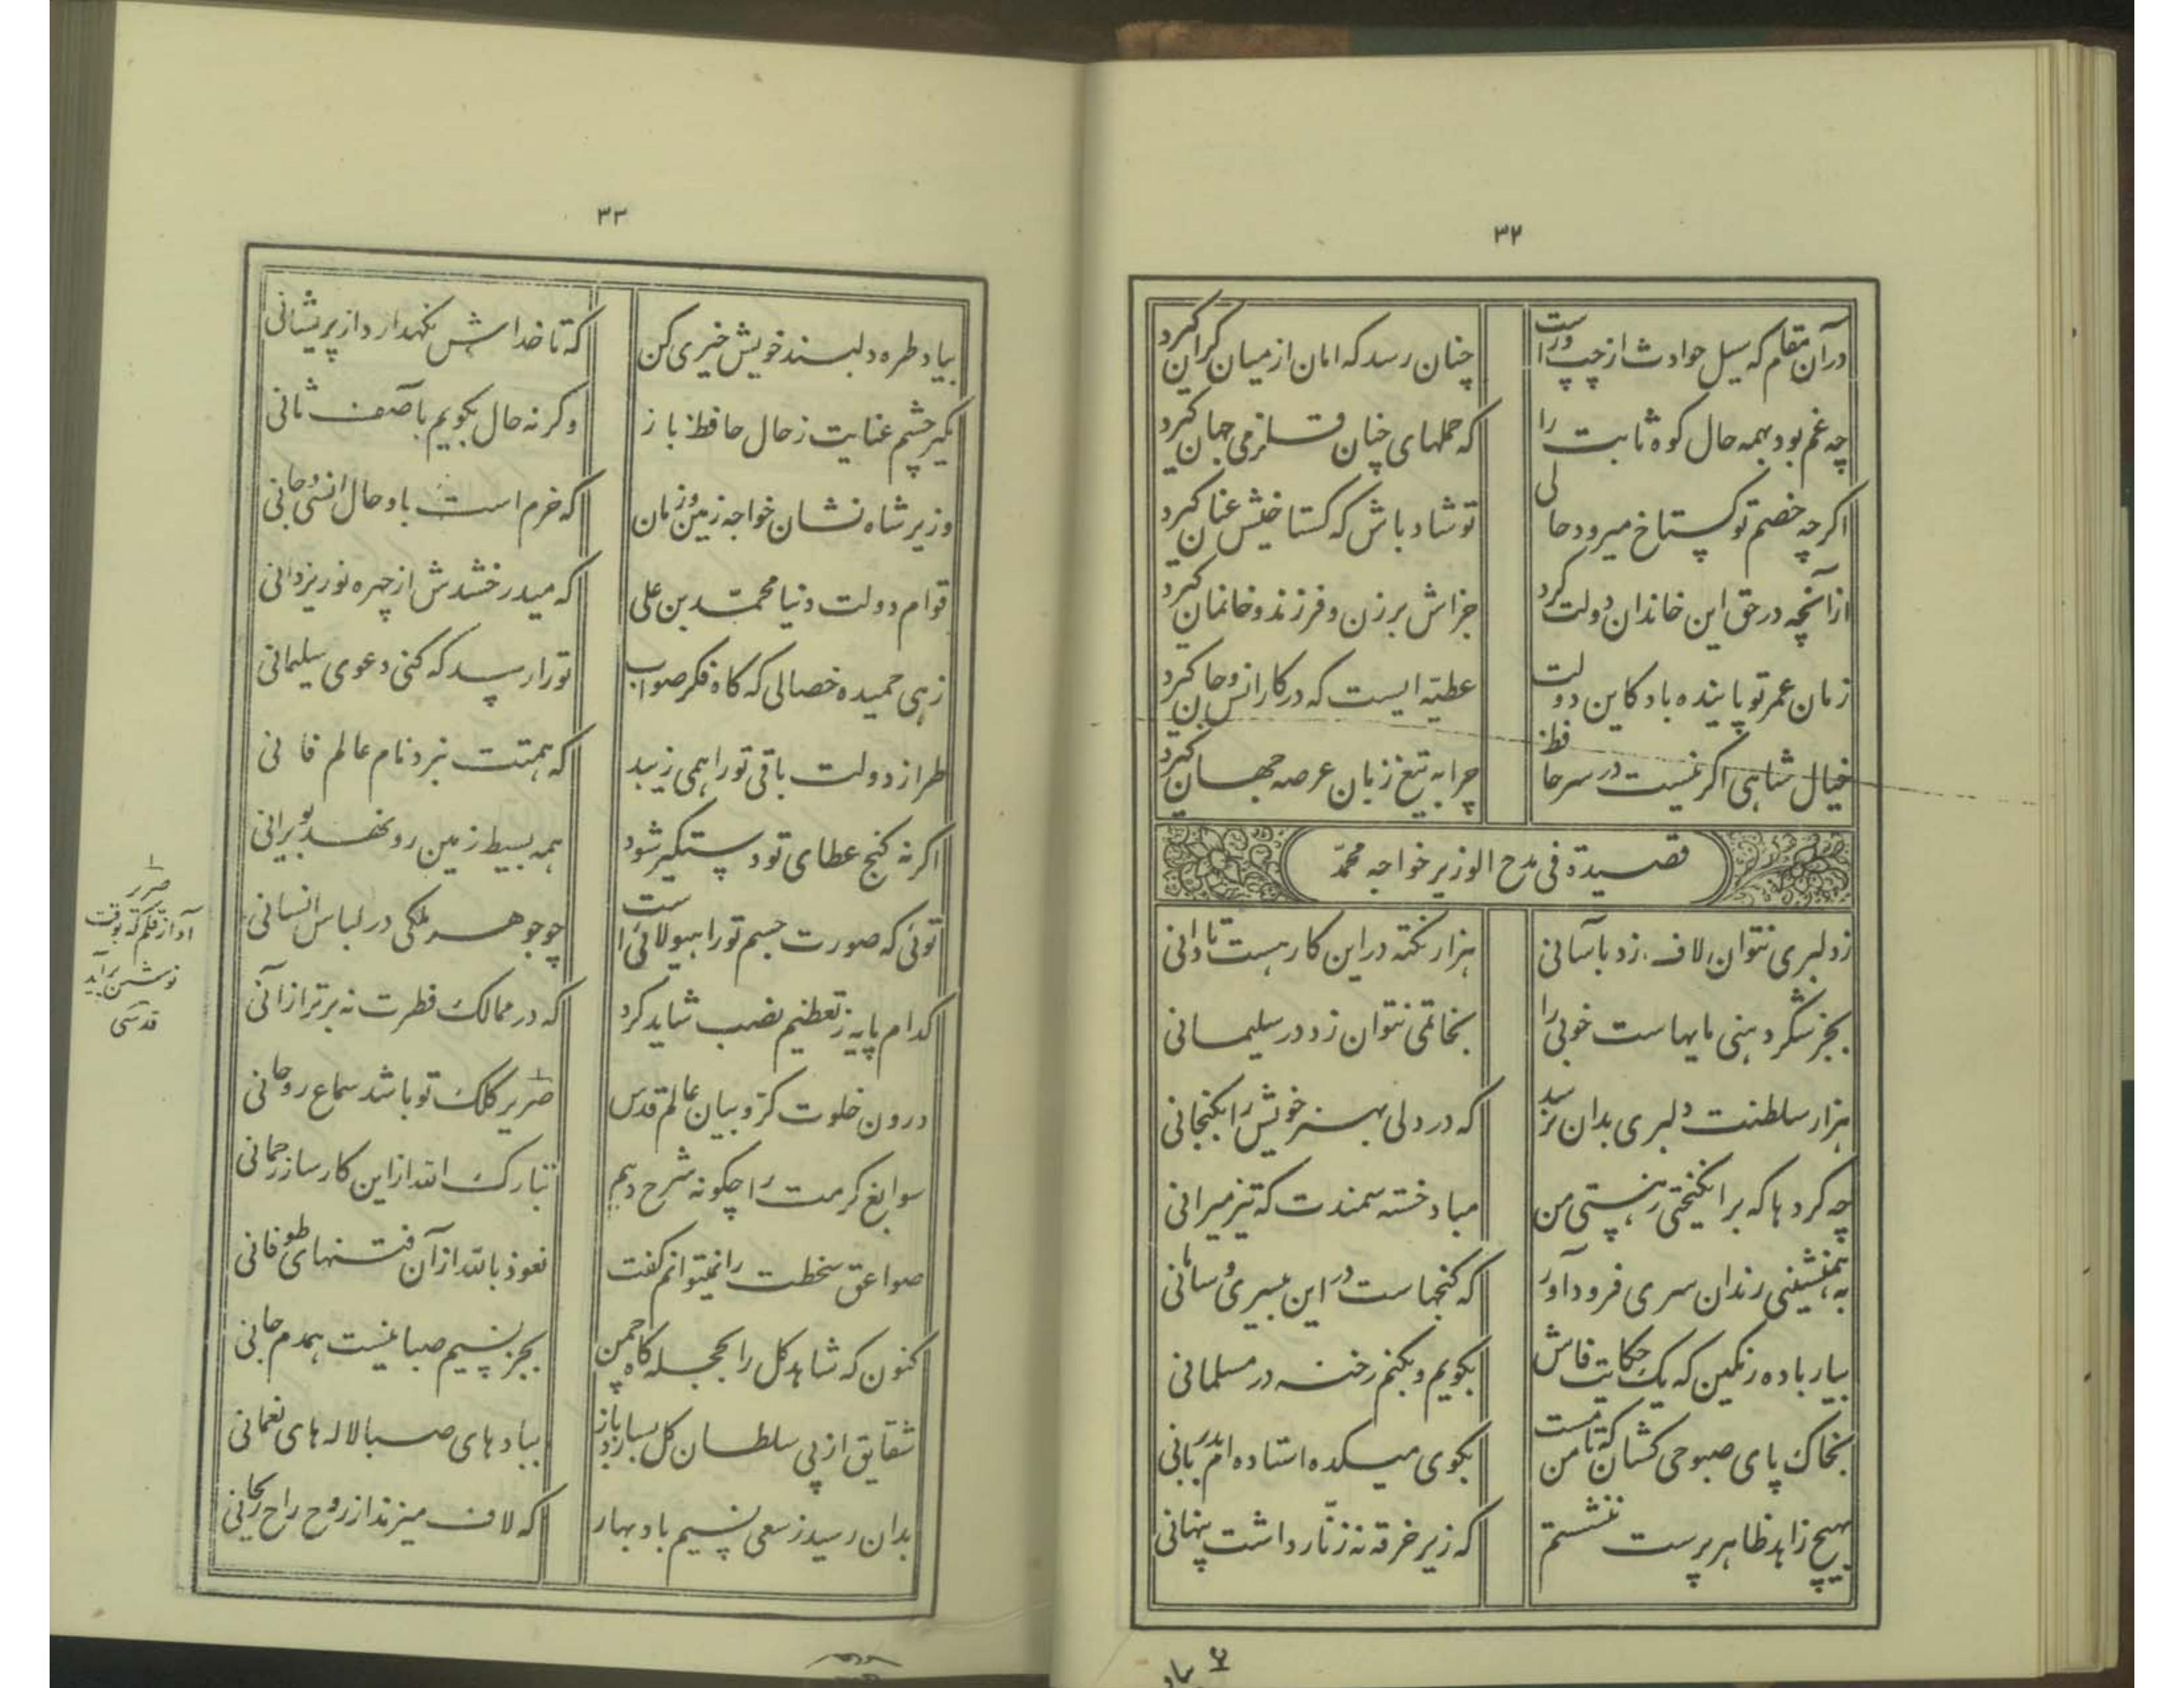 ۳۲
درآن مقام که سیل حوادث از چپ و راست چنان رسد که امان از میان کران کیرد
چه غم بود بهمه حال کوه ثابت را که حملهای چنان قلزمی جهان کیرد
اکرچه خصم تو کستاخ میرود حالی تو شاد باش که کستاخیش عنان کیرد
از آنچه در حق این خاندان دولت کرد جزاش بر زن و فرزند و خانمان کیرد
زمان عمر تو پاینده باد کاین دولت عطیّه ایست که در کار انس و جان کیرد
خیال شاهی اکر نیست در سر حافظ چرا به تیغ زبان عرصه جهان کیرد
قصیدة فی مدح الوزیر خواجه محمّد
ز دلبری نتوان لاف زد بآسانی هزار نکته در این کار هست تا دانی
بجز شکر دهنی مایهاست خوبی را بخاتمی نتوان زد در سلیمانی
هزار سلطنت دلبری بدان نرسد که در دلی بهنر خویش را بکنجانی
چه کردها که برانکیختی ز هستی من مباد خسته سمندت که تیز میرانی
به همنشینی رندان سری فرود آور که کنجهاست در این بیسری و سامانی
بیار باده رنکین که یک حکایت فاش بکویم و بکنم رخنه در مسلمانی
بخاک پای صبوحی کشان که تا من مست بکوی میکده استاده ام بدربانی
بهیچ زاهد ظاهر پرست ننشستم که زیر خرقه نه زنّار داشت پنهانی
۳۳
بیاد طره دلبند خویش خیری کن که تا خداش نکهدارد از پریشانی
مکیر چشم عنایت ز حال حافظ باز وکرنه حال بکویم بآصف ثانی
وزیر شاه نشان خواجه زمین و زمان که خرم است باو حال انسی و جانی
قوام دولت دنیا محمّد بن علی که میدرخشدش از چهره نور یزدانی
زهی حمیده خصالی که کاه فکر صواب تو را رسد که کنی دعوی سلیمانی
طراز دولت باقی تو را همی زیبد که همتت نبرد نام عالم فانی
اکر نه کنج عطای تو دستکیر شود همه بسیط زمین رو نهد بویرانی
توئی که صورت جسم تو را هیولائی است چو جوهر ملکی در لباس انسانی
کدام پایه ز تعظیم نصب شاید کرد که در ممالک فطرت نه برتر از آنی
درون خلوت کرّوبیان عالم قدس صریر کلک تو باشد سماع روحانی
سوابغ کرمت را چکونه شرح دهم تبارک الله از این کارساز رحمانی
صواعق سخطت را نمیتوانم کفت نعوذ بالله از آن فتنهای طوفانی
کنون که شاهد کل را بحجله کاه چمن بجز نسیم صبا نیست همدم جانی
شقایق از پی سلطان کل بسازد باز ببادهای صبا لاله های نعمانی
بدان رسید ز سعی نسیم باد بهار که لاف میزند از روح راح ریحانی
صریر
آواز قلم که بوقت
نوشتن برآید
قدسی